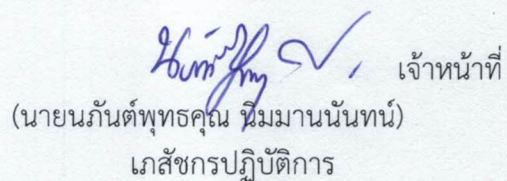 เจ้าหน้าที่
(นายนภันต์พุทธคุณ นิมมานนันทน์)
เภสัชกรปฏิบัติการ